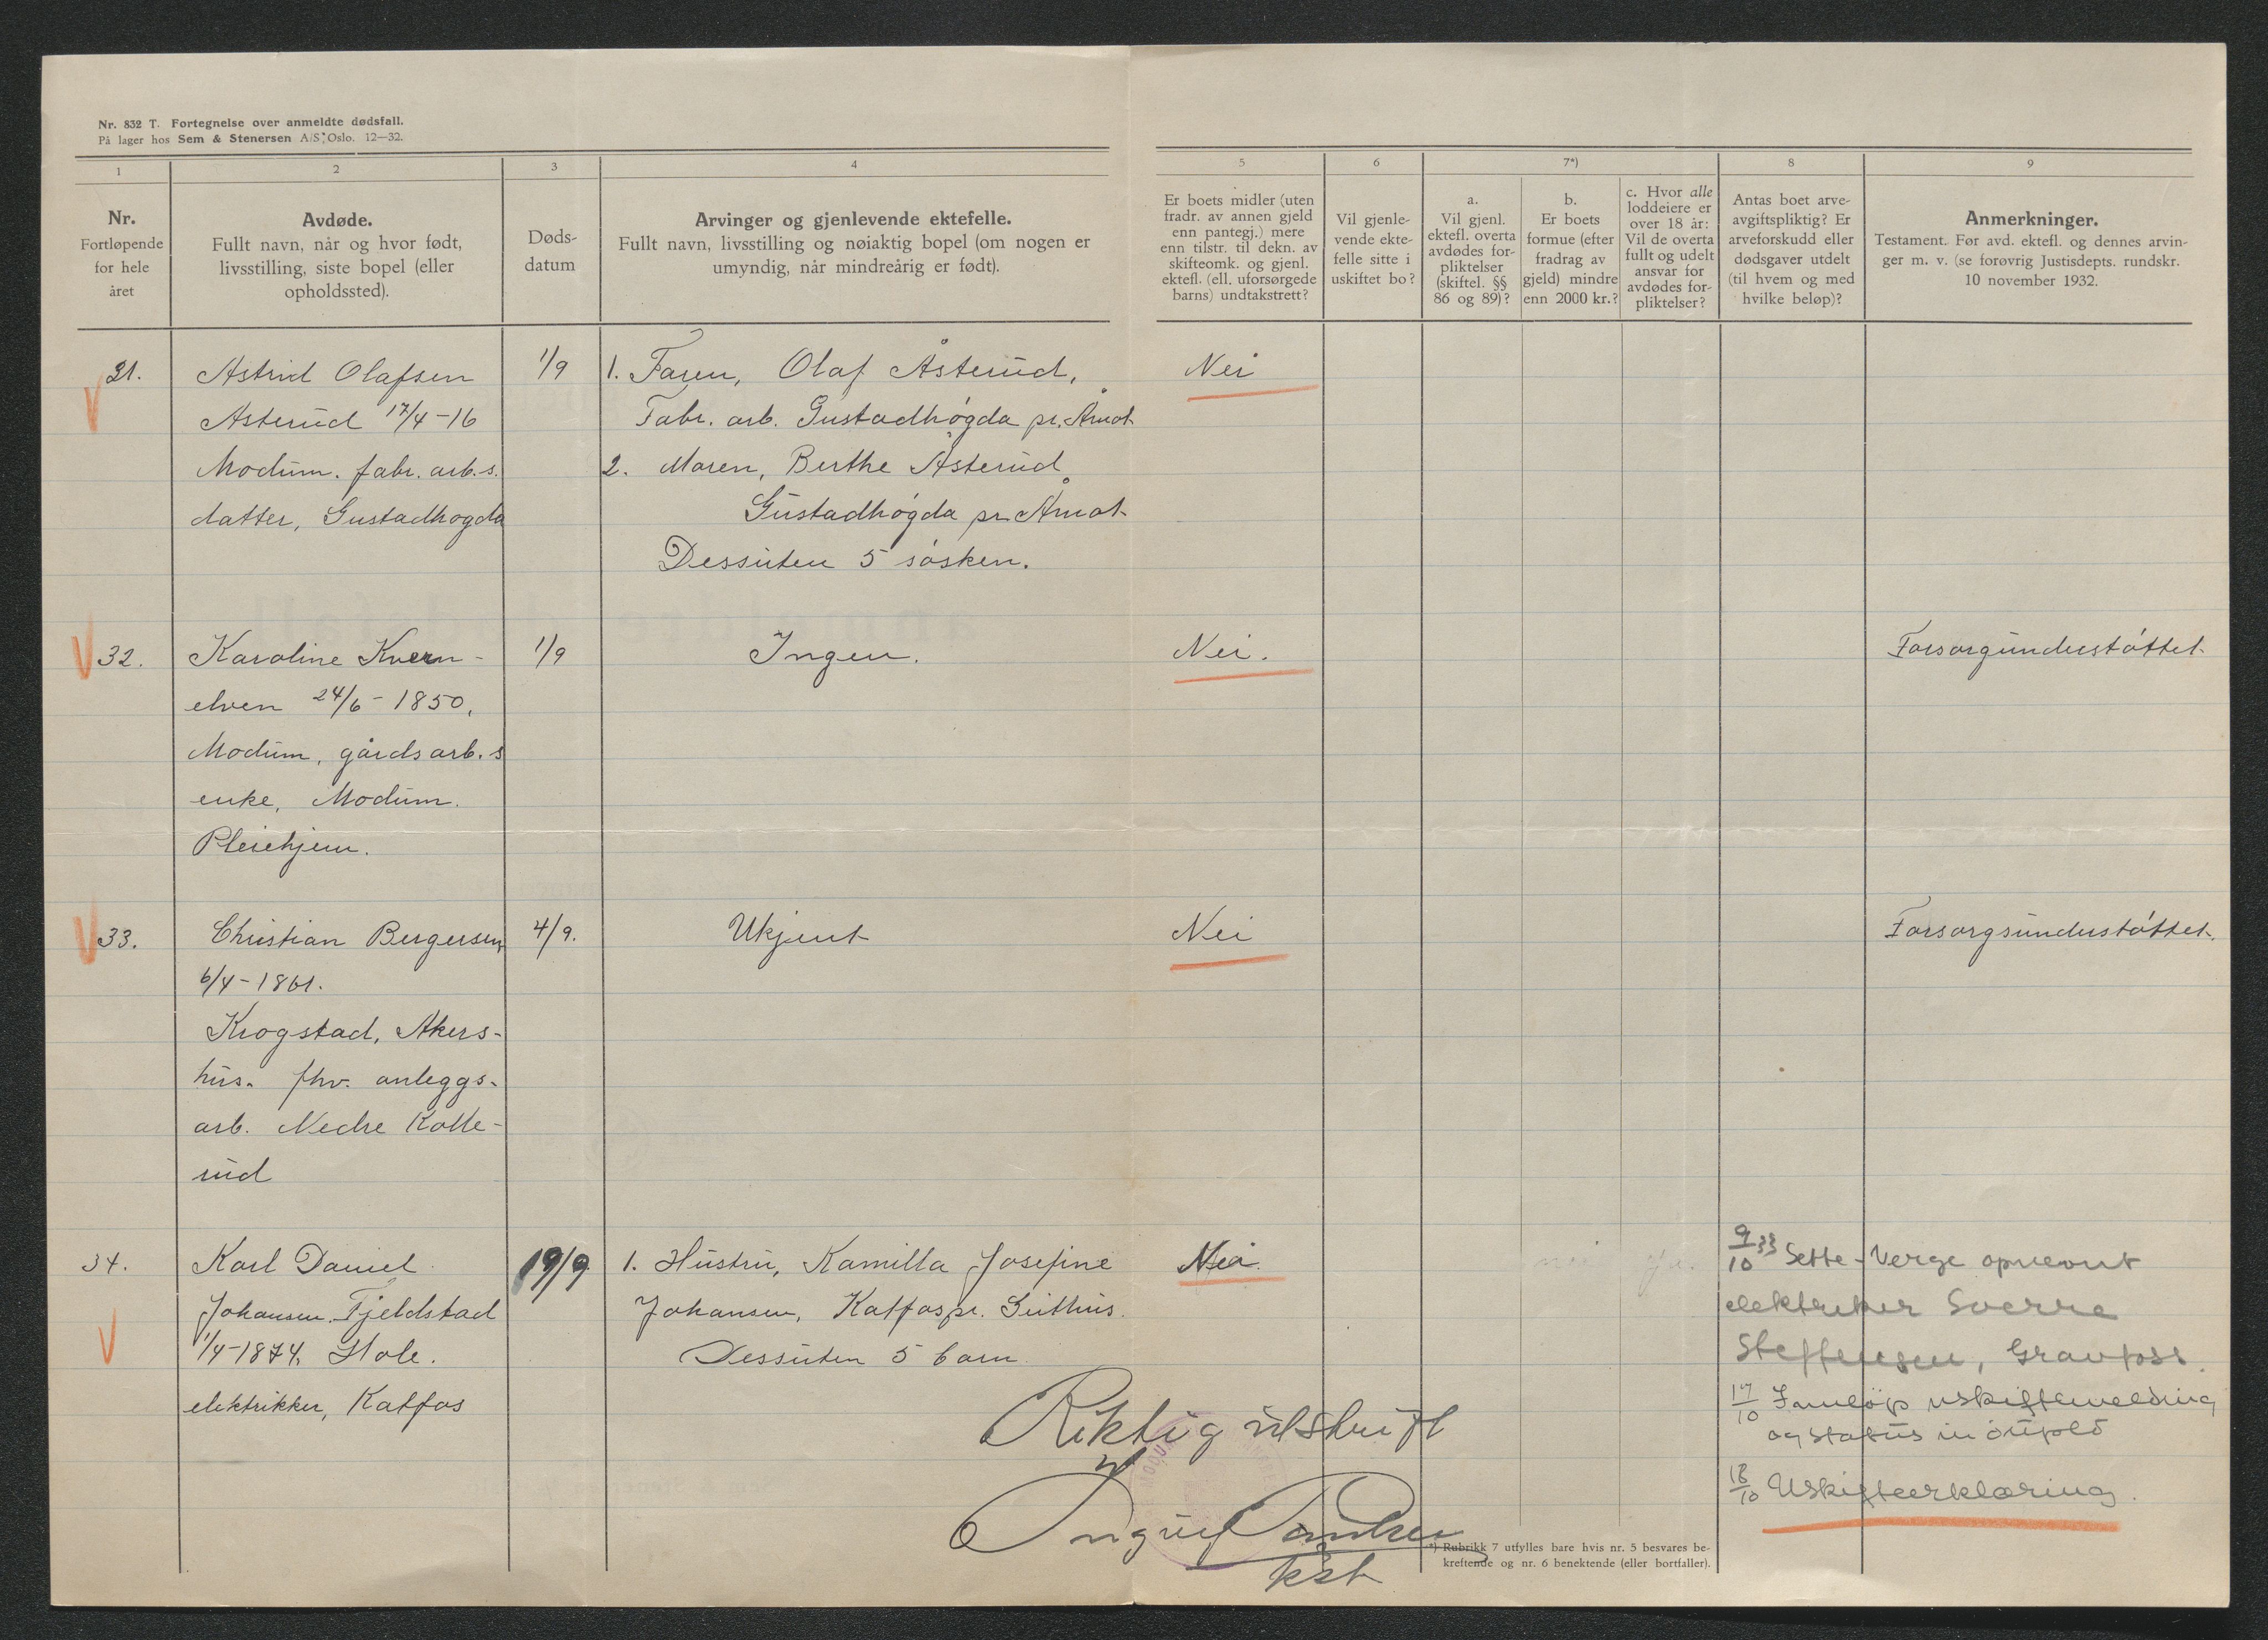 Nr. 832 T. Fortegnelse over anmeldte dødsfall.
På lager hos Sem & Stenersen A/S, Oslo. 12—32.
1
2
3
4
5
6
7*)
8
9
Nr.
Fortløpende
for hele
året
Avdøde.
Fullt navn, når og hvor født,
livsstilling, siste bopel (eller
opholdssted).
Døds-
datum
Arvinger og gjenlevende ektefelle.
Fullt navn, livsstilling og nøiaktig bopel (om nogen er
umyndig, når mindreårig er født).
Er boets midler (uten
fradr. av annen gjeld
enn pantegj.) mere
enn tilstr. til dekn. av
skifteomk. og gjenl.
ektefl. (ell. uforsørgede
barns) undtakstrett?
Vil gjenle-
vende ekte-
felle sitte i
uskiftet bo?
a.
Vil gjenl.
ektefl. overta
avdødes for-
pliktelser
(skiftel. §§
86 og 89)?
b.
Er boets
formue (efter
fradrag av
gjeld) mindre
enn 2000 kr.?
c. Hvor alle
loddeiere er
over 18 år:
Vil de overta
fullt og udelt
ansvar for
avdødes for-
pliktelser?
Antas boet arve-
avgiftspliktig? Er
arveforskudd eller
dødsgaver utdelt
(til hvem og med
hvilke beløp)?
Anmerkninger.
Testament. Før avd. ektefl. og dennes arvin-
ger m. v. (se forøvrig Justisdepts. rundskr.
10 november 1932.
31.
Astrid Olafsen
Åsterud 17/4-16
Modum. fabr. arb.s.
datter, Gustadhøgda
1/9
1. Faren, Olaf Åsterud,
Fabr. arb. Gustadhøgda pr. Åmot
2. Moren, Berthe Åsterud
Gustadhøgda pr. Åmot
Dessuten 5 søsken.
Nei
32.
Karoline Kvern-
elven 24/6-1850,
Modum, gårdsarb.s
enke, Modum.
Pleiehjem.
1/9
Ingen.
Nei.
Forsorgunderstøttet.
33.
Christian Bergersen,
6/4-1861.
Krogstad, Akers-
hus. fhv. anleggs-
arb. Nedre Kolle-
rud
4/9.
Ukjent
Nei
Forsorgsunderstøttet.
34.
Karl Daniel
Johansen. Fjeldstad
1/4-1874. Hole.
elektrikker, Katfos
19/9
1. Hustru, Kamilla Josefine
Johansen, Katfos pr. Geithus.
Dessuten 5 barn
Nei.
nei
ja.
9/10 33 Sette-Verge opnevnt
elektriker Sverre
Steffensen, Gravfoss.
17/10 Innløp uskiftemelding
og status
18/10 Uskifteerklæring.
Riktig utskrift
kst
*) Rubrikk 7 utfylles bare hvis nr. 5 besvares be-
kreftende og nr. 6 benektende (eller bortfaller).